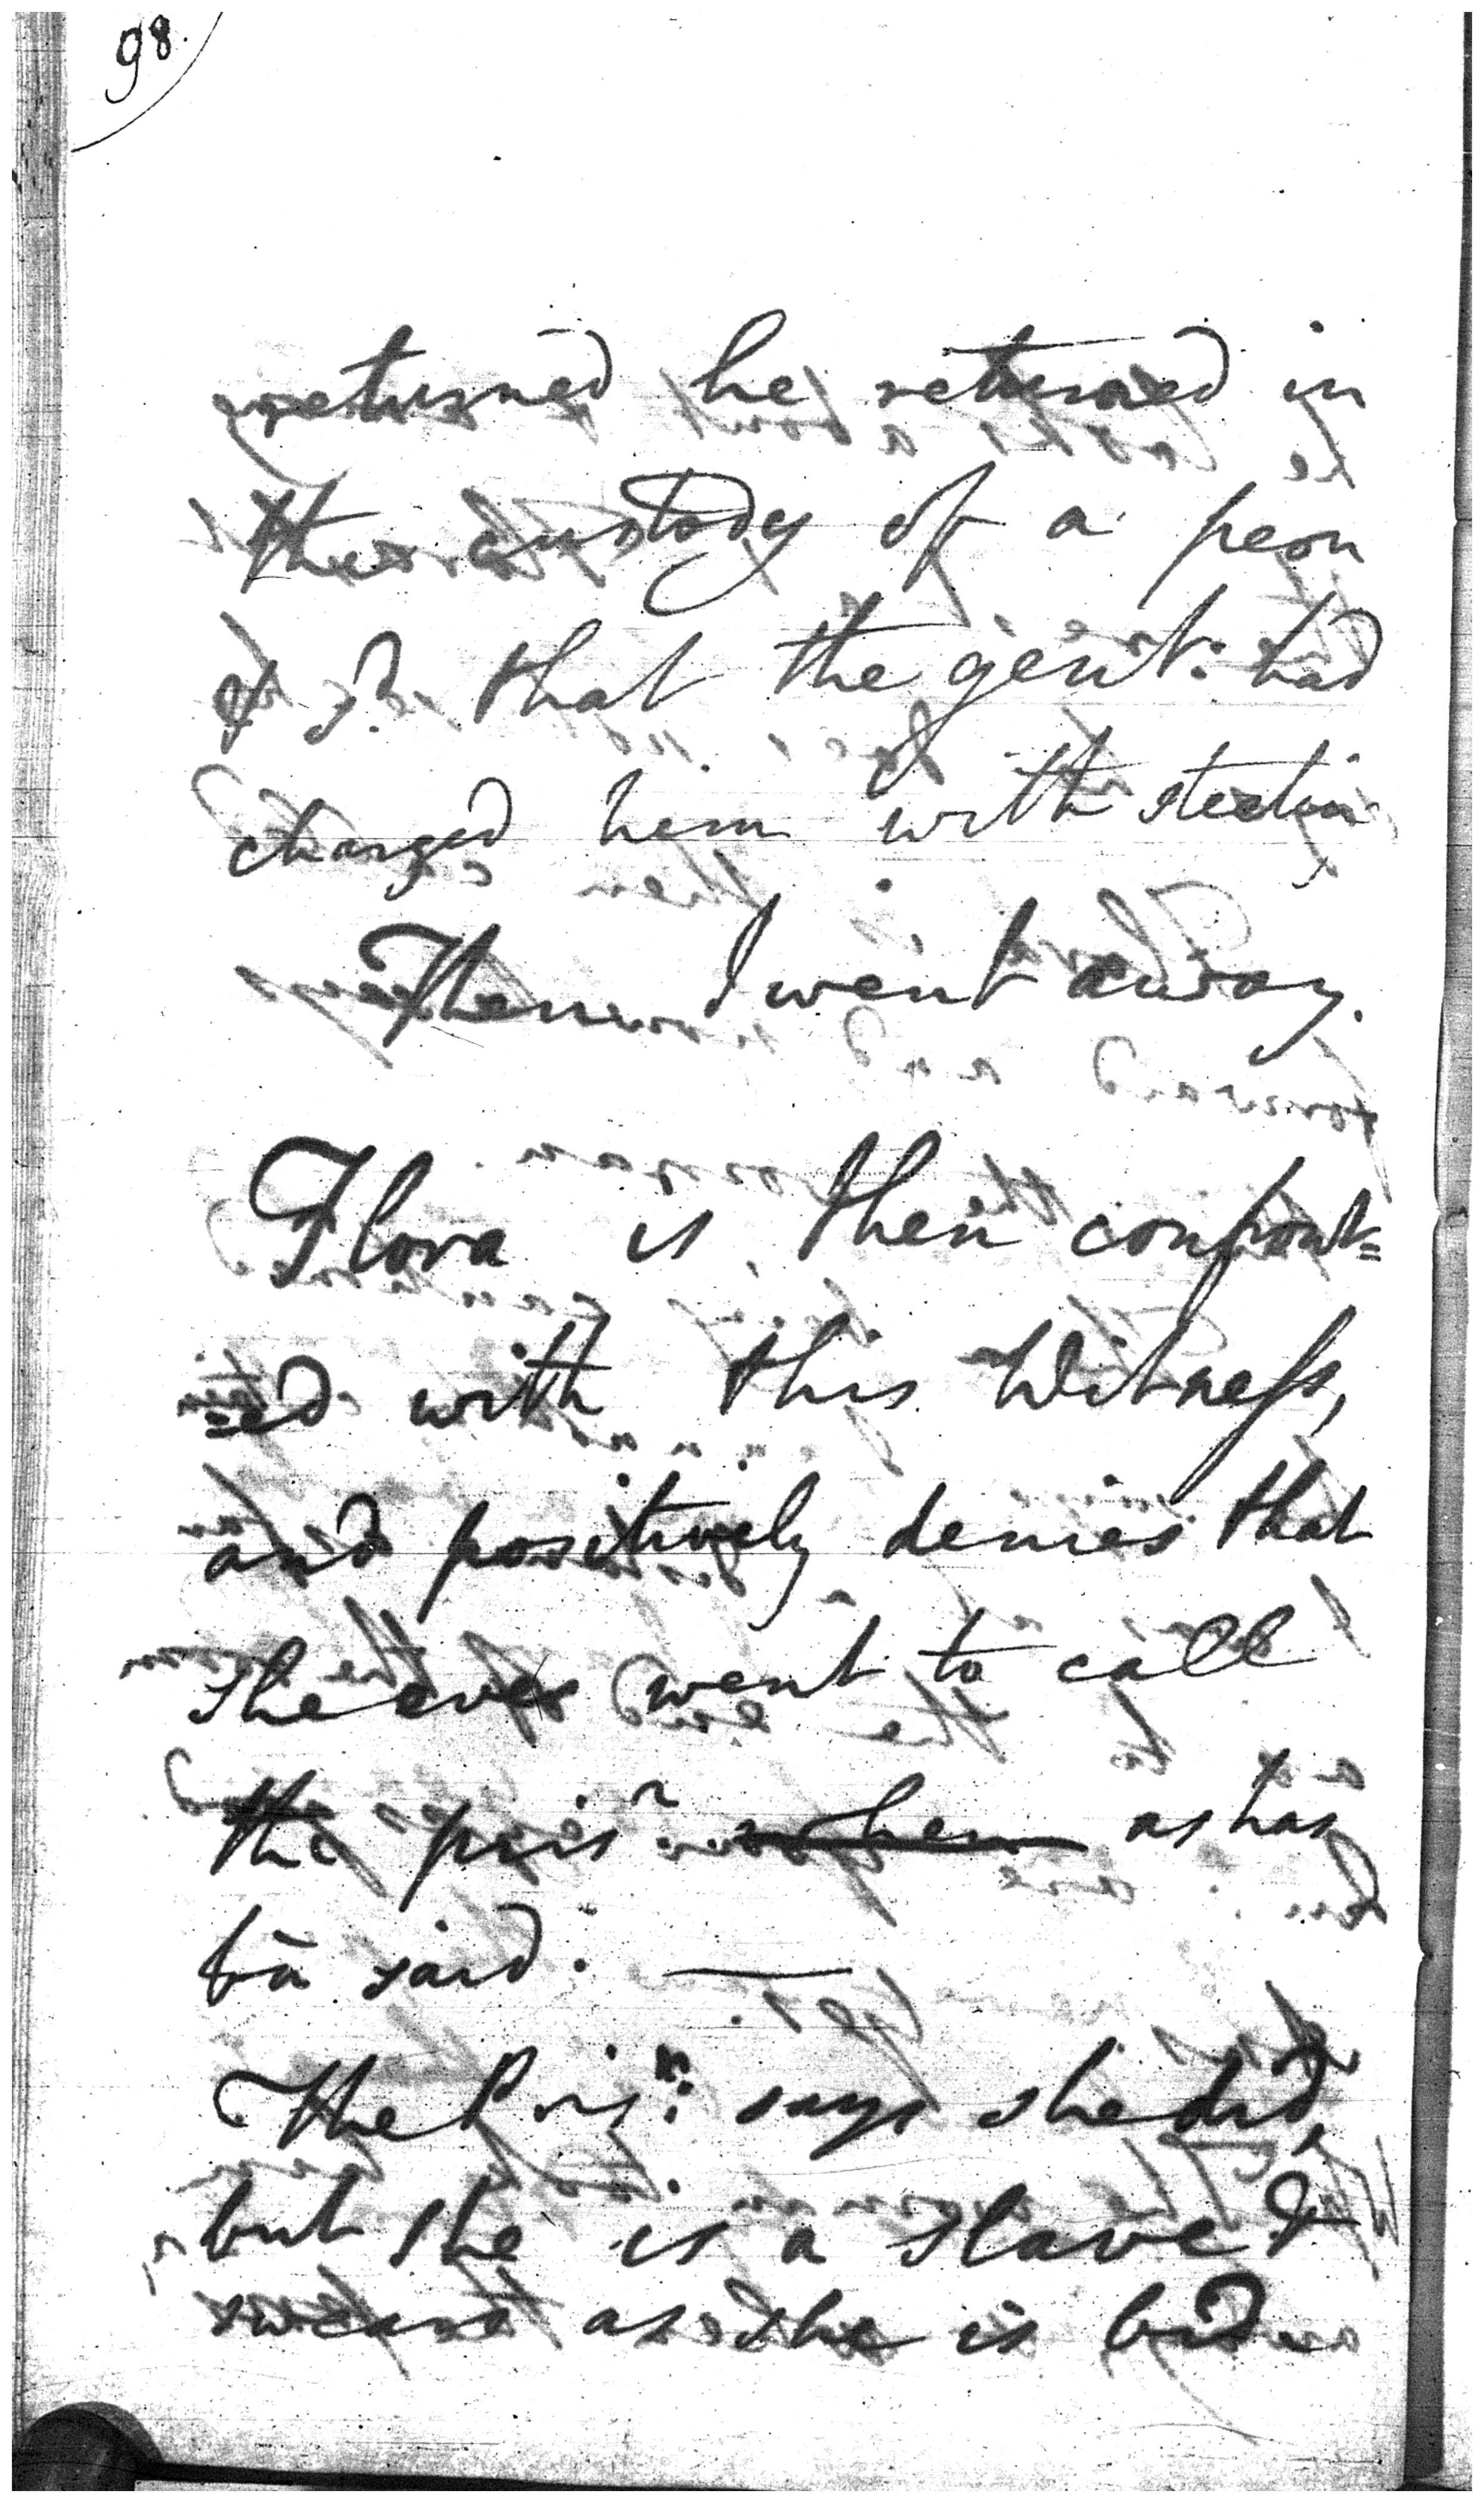 98.
returned he returned in
the custody of a peon
& sd. that the gent: had
charged him with stealin
Then I went away.
Flora is then confront=
=ed with this Witness,
and positively denies that
she ever went to call
the prisr as has
bn said. —
The Prisr: says she did,
but she is a slave &
swears as she is bid